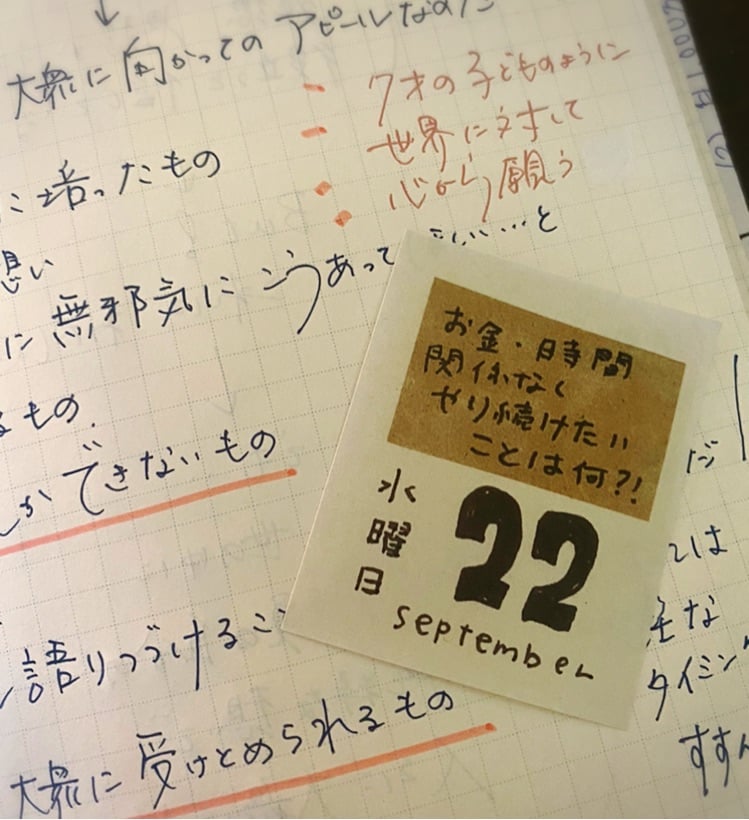 大衆に向かってのアピールなのだ
7才の子どものように
世界に対して
心から願う
に培ったもの
想い
に無邪気にこうあって ほしい……と
るもの.
しかできないもの
語りつづけるこ
大衆に受けとめられるもの
お金・時間
関係なく
やり続けたい
ことは何?!
水曜日
22
September
だ
とは
な
タイミング
すすん